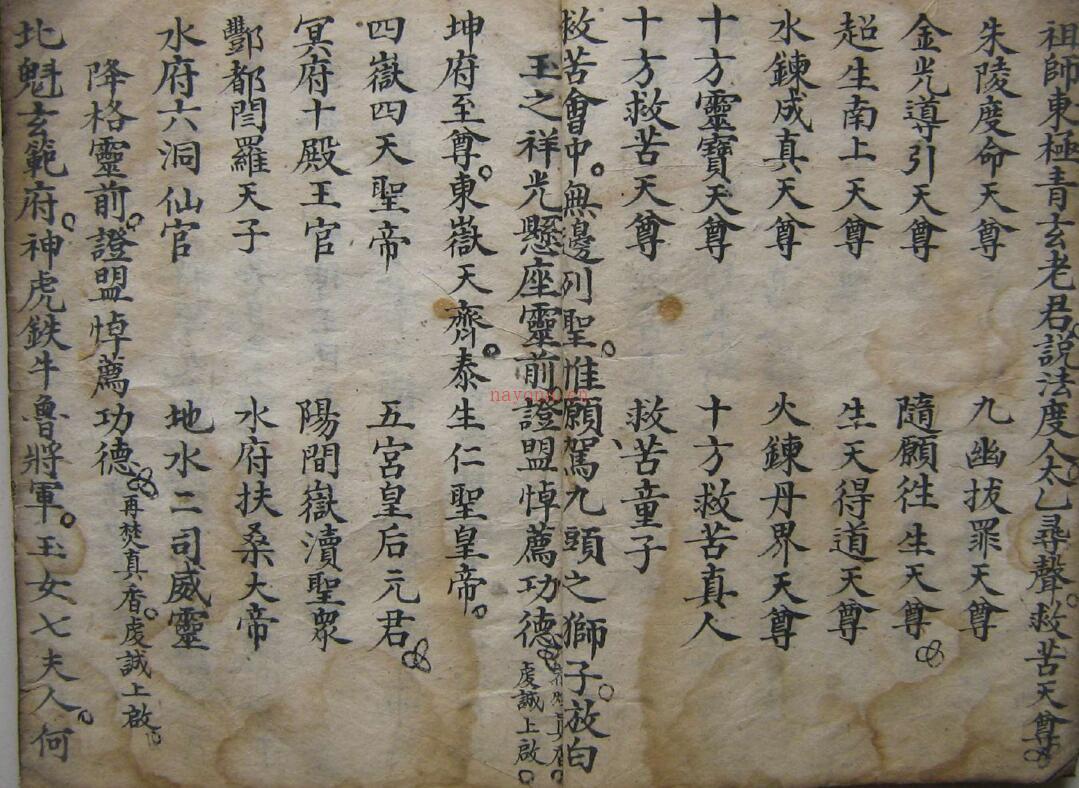 祖師東極青玄老君。説法度人。太乙尋聲。救苦天尊
朱陵度命天尊　九幽拔罪天尊
金光導引天尊　隨願徃生天尊
超生南上天尊　生天得道天尊
水鍊成真天尊　火鍊丹界天尊
十方靈寶天尊　十方救苦真人
十方救苦天尊　救苦童子
救苦會中。無邊列聖。惟願駕九頭之獅子。放白
玉之祥光懸座靈前。證盟悼薦功德 真香。虔誠上啟。
坤府至尊。東嶽天齊。泰生仁聖皇帝。
四嶽四天聖帝　五宮皇后元君
冥府十殿王官　陽間嶽瀆聖眾
酆都閆羅天子　水府扶桑大帝
水府六洞仙官　地水二司威靈
降格靈前。證盟悼薦功德 再焚真香。虔誠上啟。
北魁玄範府。神虎鉄牛魯將軍。玉女七夫人。何